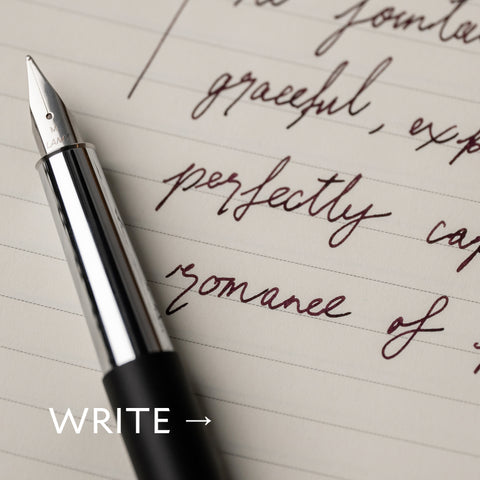 the fountai
graceful, exp
perfectly cap
romance of
M
LAMY
WRITE →